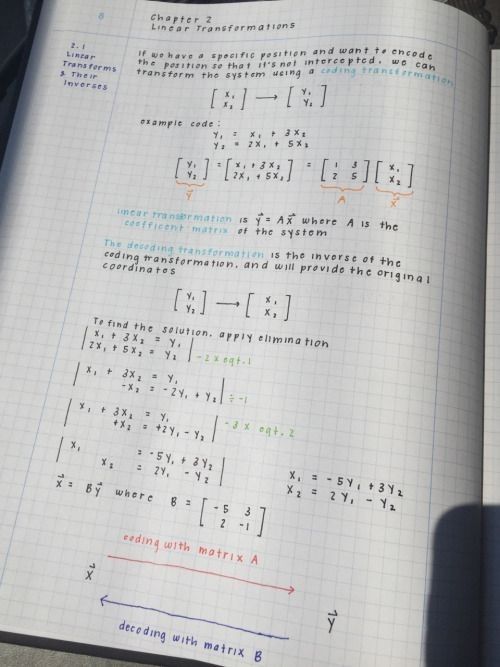 8
Chapter 2
Linear Transformations
2.1
Linear
Transforms
& Their
Inverses
If we have a specific position and want to encode
the position so that it's not intercepted, we can
transform the system using a coding transformation
[x₁ x₂] → [y₁ y₂]
example code:
y₁ = x₁ + 3x₂
y₂ = 2x₁ + 5x₂
[y₁ y₂] = [x₁ + 3x₂ 2x₁ + 5x₂] = [1 3 2 5] [x₁ x₂]
y⃗ A x⃗
linear transformation is y⃗ = Ax⃗ where A is the
coefficent matrix of the system
The decoding transformation is the inverse of the
coding transformation, and will provide the original
coordinates
[y₁ y₂] → [x₁ x₂]
To find the solution, apply elimination
| x₁ + 3x₂ = y₁ |
| 2x₁ + 5x₂ = y₂ | -2 x eqt. 1
| x₁ + 3x₂ = y₁ |
| -x₂ = -2y₁ + y₂ | ÷ -1
| x₁ + 3x₂ = y₁ |
| +x₂ = +2y₁ - y₂ | -3 x eqt. 2
| x₁ = -5y₁ + 3y₂ |
| x₂ = 2y₁ - y₂ |
x₁ = -5y₁ + 3y₂
x₂ = 2y₁ - y₂
x⃗ = By⃗ where B = [-5 3 2 -1]
coding with matrix A
x⃗
y⃗
decoding with matrix B